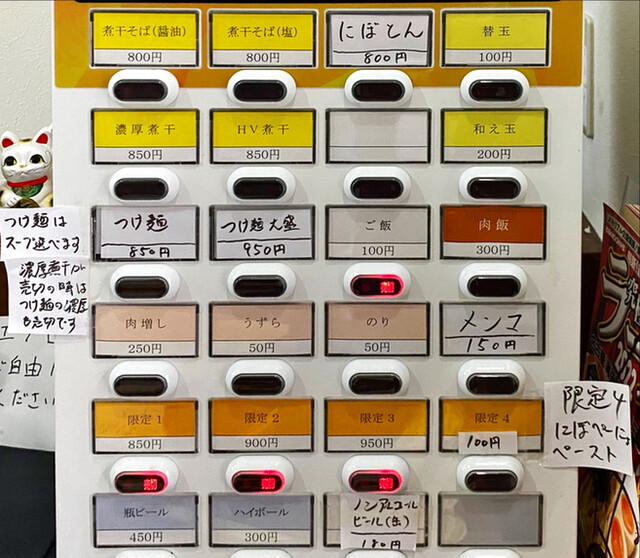 煮干そば(醤油)
800円
煮干そば(塩)
800円
にぼとん
800円
替玉
100円
濃厚煮干
850円
HV煮干
850円
和え玉
200円
つけ麺は
スープ選べます
つけ麺
850円
つけ麺大盛
950円
ご飯
100円
肉飯
300円
濃厚煮干が
売切の時は
つけ麺の濃厚
も売切です
売切
肉増し
250円
うずら
50円
のり
50円
メンマ
150円
ご自由に
ください
限定1
850円
限定2
900円
限定3
950円
限定4
100円
限定4
にぼペーに
ペースト
売切
売切
売切
瓶ビール
450円
ハイボール
300円
ノンアルコール
ビール(缶)
180円